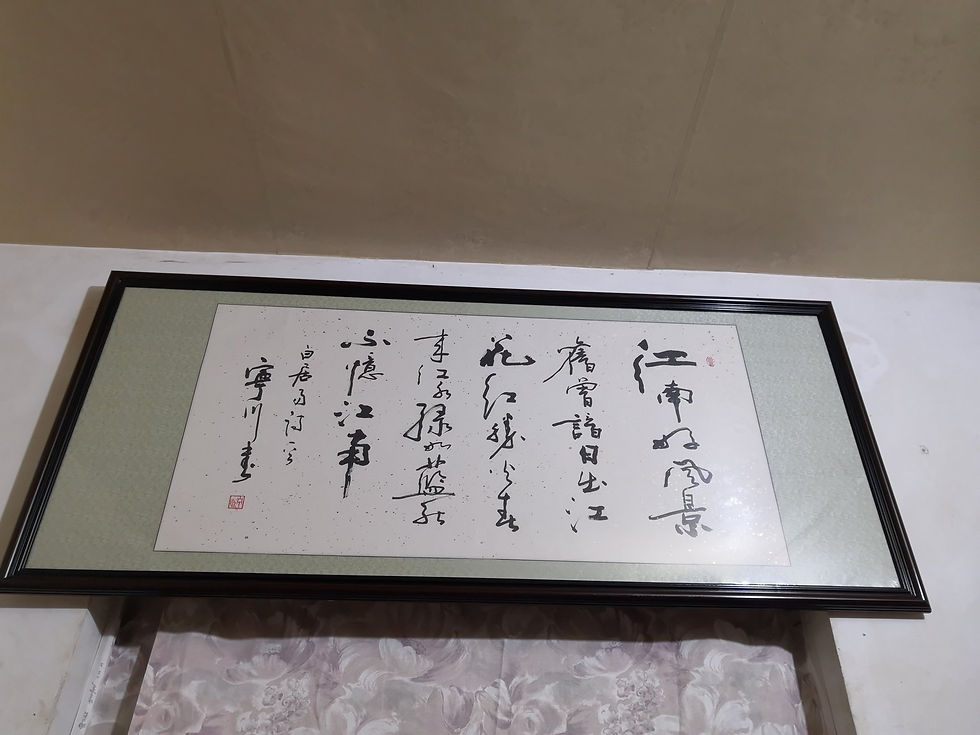 江南好風景
舊曾諳日出江
花紅勝火春
來江水綠如藍能
不憶江南
白居易詩一首
寧川書